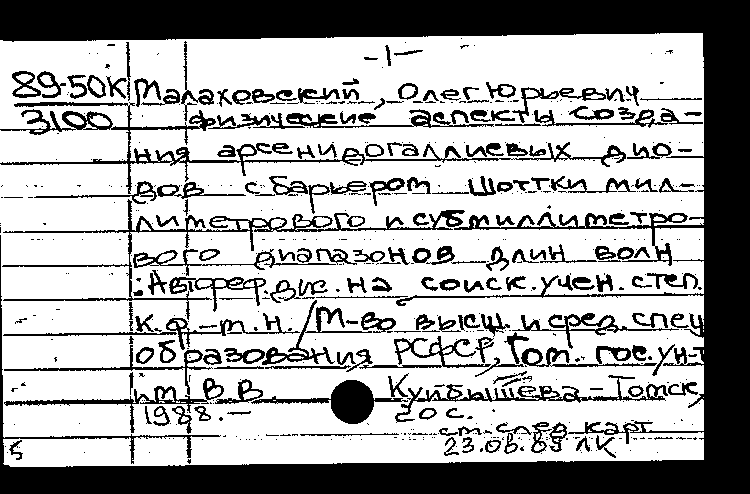 -1-
89-50К Малаховский, Олег Юрьевич
3100 физические аспекты созда-
ния арсенидогаллиевых дио-
дов с барьером Шоттки мил-
лиметрового и субмиллиметро-
вого диапазонов длин волн
: Автореф.дис. на соиск.учен.степ.
к.ф.-т.н. / М-во высш. и сред. спец
образования РСФСР, Том. гос. ун-т
им. В.В. Куйбышева - Томск,
1988. - 20 с.
см.след карт
5 23.06.89 ЛК